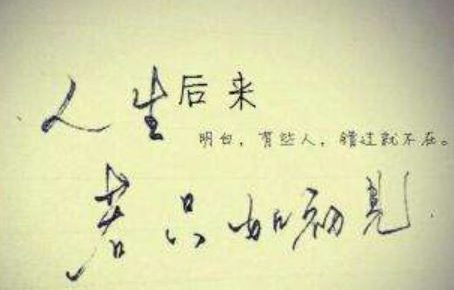 人生后来
明白，有些人，错过就不在。
若只如初見.